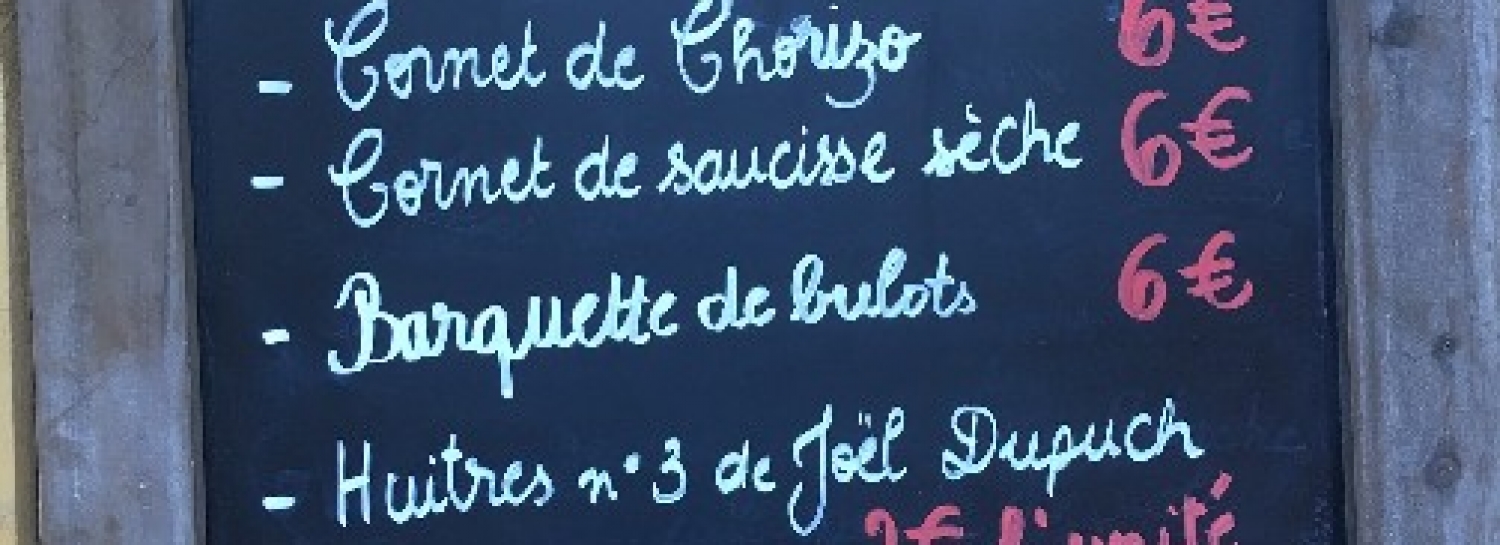 - Cornet de Chorizo 6€
- Cornet de saucisse sèche 6€
- Barquette de bulots 6€
- Huitres n°3 de Joël Dupuch
2€ l'unité